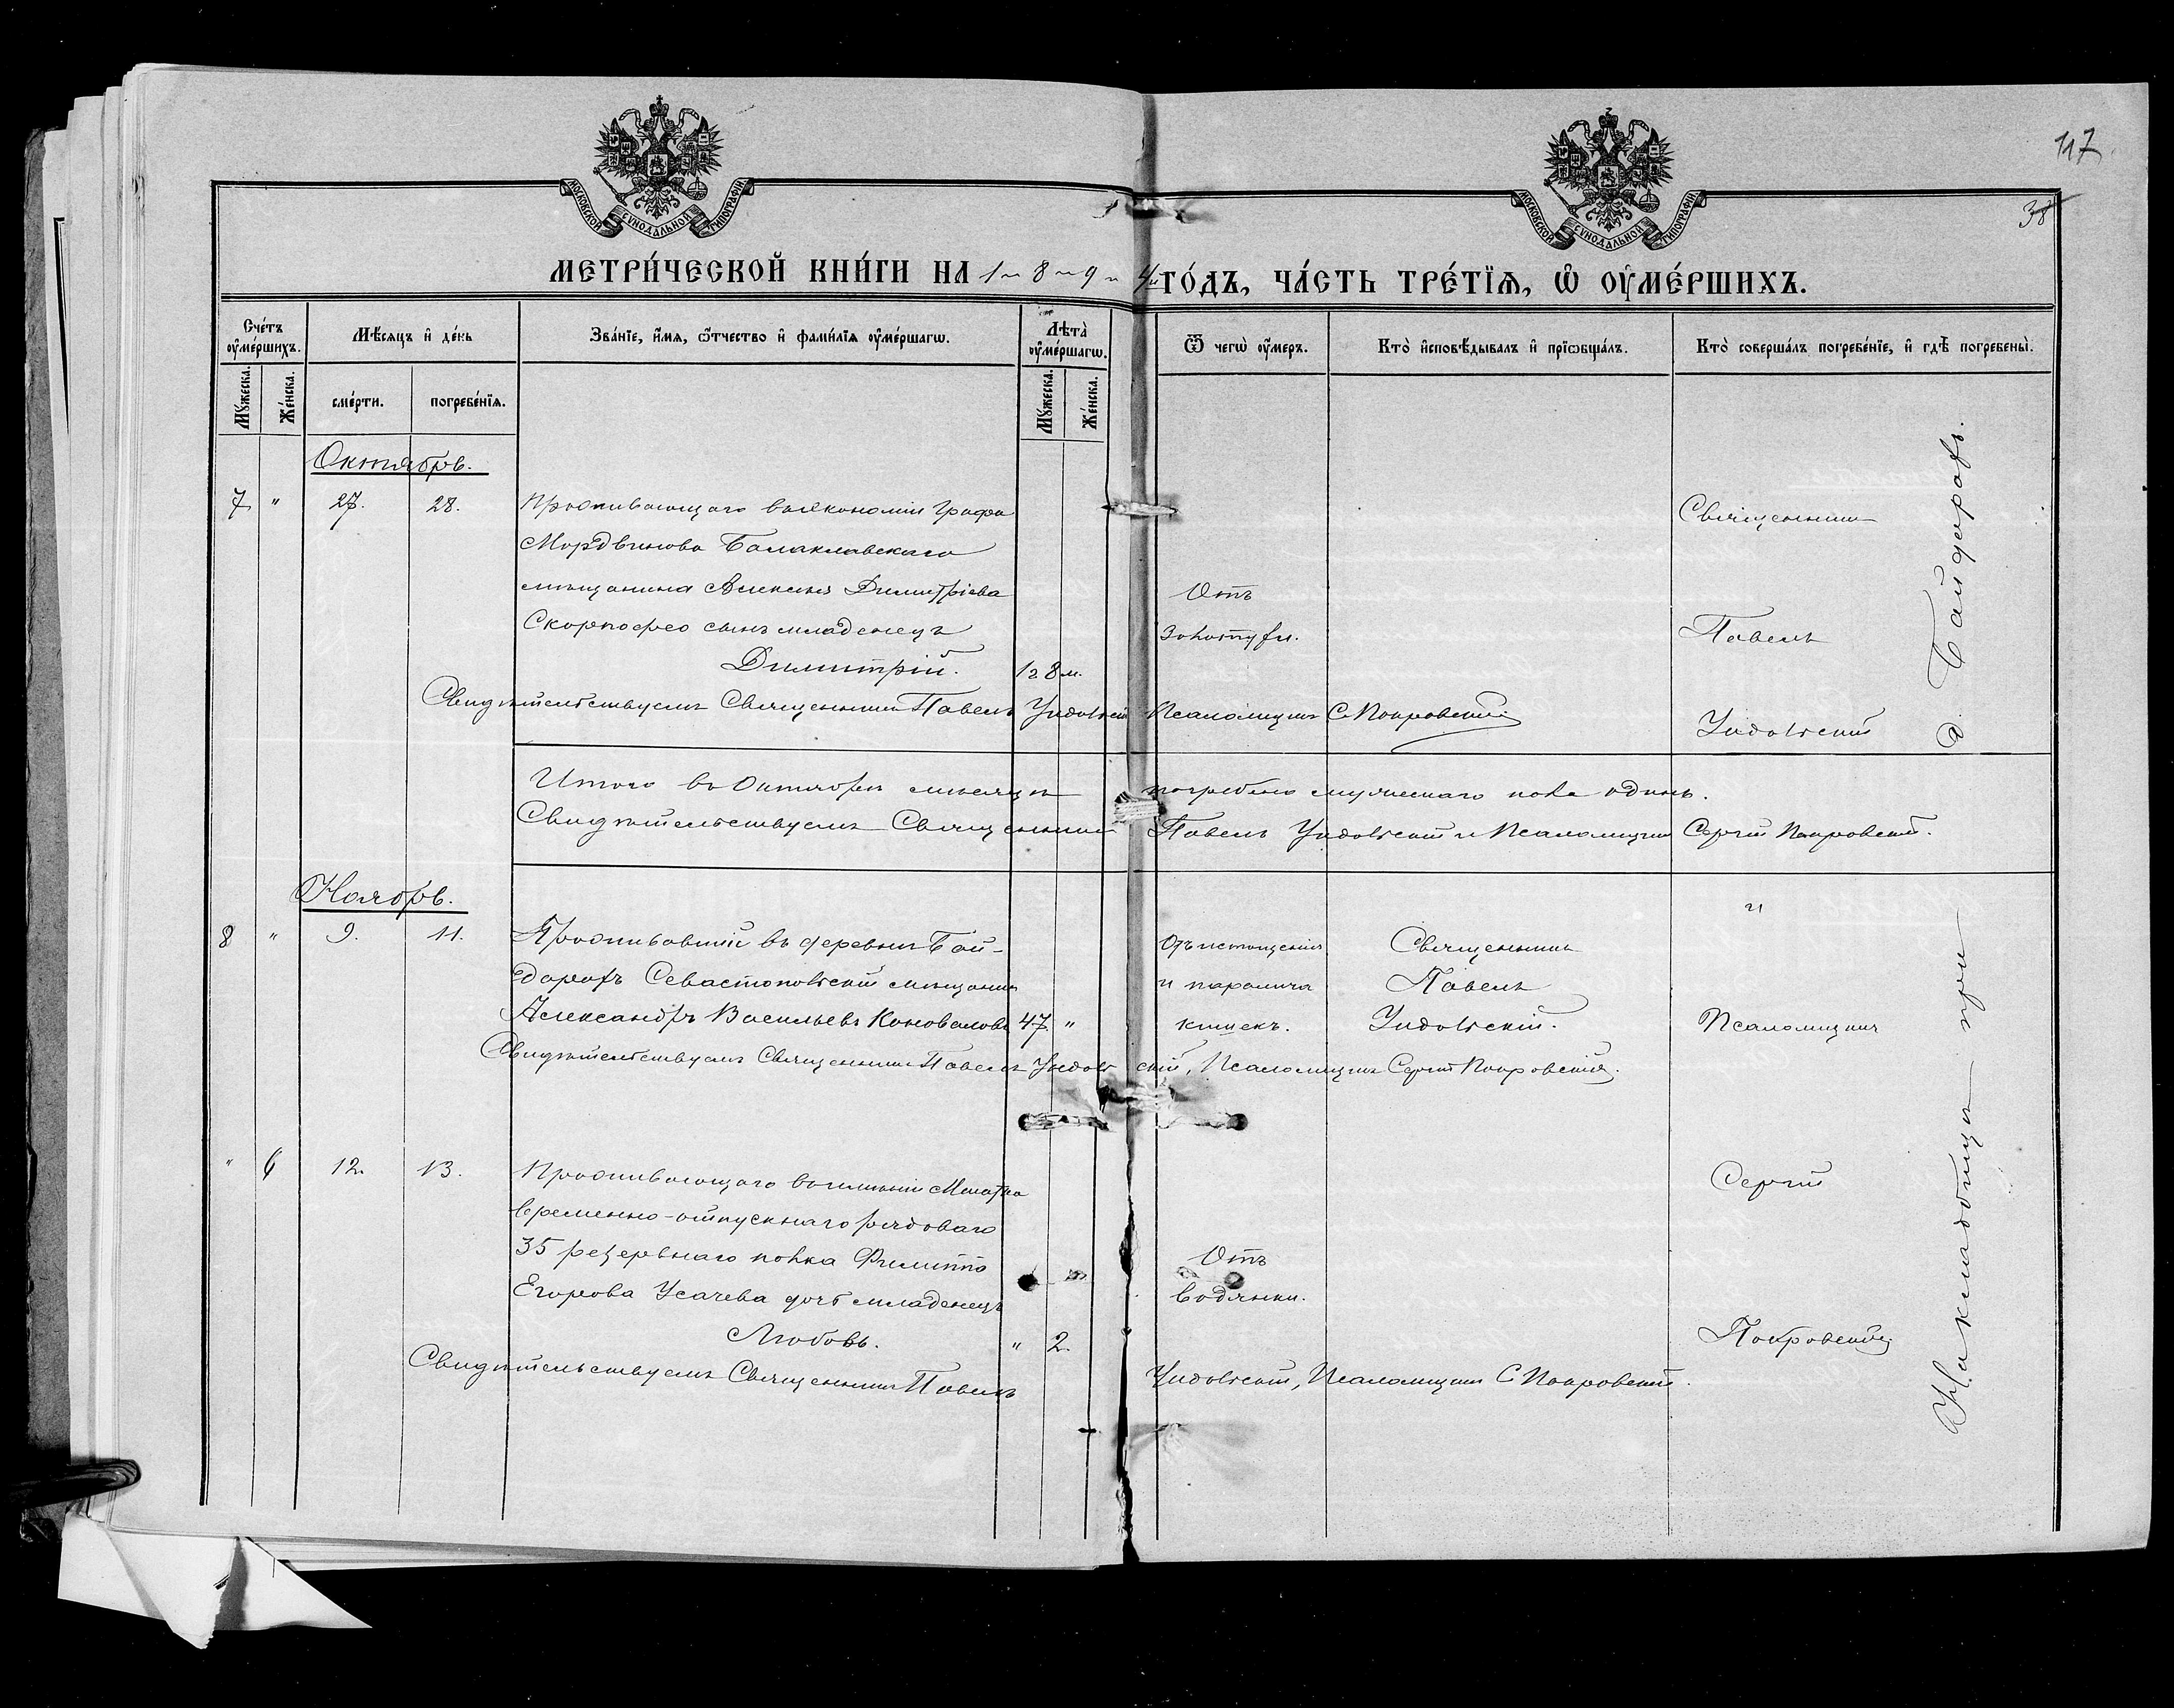 117
38
МОСКОВСКОЙ СѴНОДАЛЬНОЙ ТИПОГРАФІИ.
МОСКОВСКОЙ СѴНОДАЛЬНОЙ ТИПОГРАФІИ.
МЕТРИ́ЧЕСКОЙ КНИ́ГИ НА 1 8 9 4й ГО́ДЪ, ЧА́СТЬ ТРЕ́ТІѦ, Ѡ҆ ОУ҆МЕ́РШИХЪ.
Сче́тъ оу҆ме́ршихъ.
Мѣ́сяцъ и҆ де́нь
Зва́нїе, и҆́мѧ, ѻ҆́тчество и҆ фами́лїѧ оу҆ме́ршагѡ.
Лѣ́та оу҆ме́ршагѡ.
Ѿ чегѡ̀ оу҆́меръ.
Кто̀ и҆сповѣ́дывалъ и҆ прїѡбща́лъ.
Кто̀ соверша́лъ погребе́нїе, и҆ гдѣ̀ погребены̀.
Мꙋ́жеска.
Же́нска.
сме́рти.
погребе́нїѧ.
Мꙋ́жеска.
Же́нска.
Октябрь.
7 " 27. 28. Проживающаго въ экономіи Графа
Мордвинова Балаклавскаго
мѣщанина Алексія Димитріева
Скорпофео сынъ младенецъ
Димитрій. 1 г 8 м.
Отъ
золотухи.
Священникъ
Павелъ
Ундольскій
Свидѣтельствуемъ Священникъ Павелъ Ундольскій Псаломщикъ С Покровскій
Итого въ Октябрѣ мѣсяцѣ погребено мужескаго пола одинъ.
Свидѣтельствуемъ Священникъ Павелъ Ундольскій и Псаломщикъ Сергій Покровскій.
Ноябрь.
8 " 9. 11. Проживавшій въ деревнѣ Бай-
дарахъ Севастопольскій мѣщанинъ
Александръ Васильевъ Коноваловъ 47 "
Отъ истощенія
и паралича
кишекъ.
Священникъ
Павелъ
Ундольскій.
и
Псаломщикъ
Свидѣтельствуемъ Священникъ Павелъ Ундольскій, Псаломщикъ Сергій Покровскій.
" 6 12. 13. Проживающаго въ имѣніи
временно-отпускнаго рядоваго
35 резервнаго полка Филиппа
Егорова Усачева дочь младенецъ
Любовь. " 2.
Отъ
водянки.
Сергій
Покровскій
Свидѣтельствуемъ Священникъ Павелъ Ундольскій, Псаломщикъ С Покровскій.
На кладбищѣ при д. Байдарахъ.